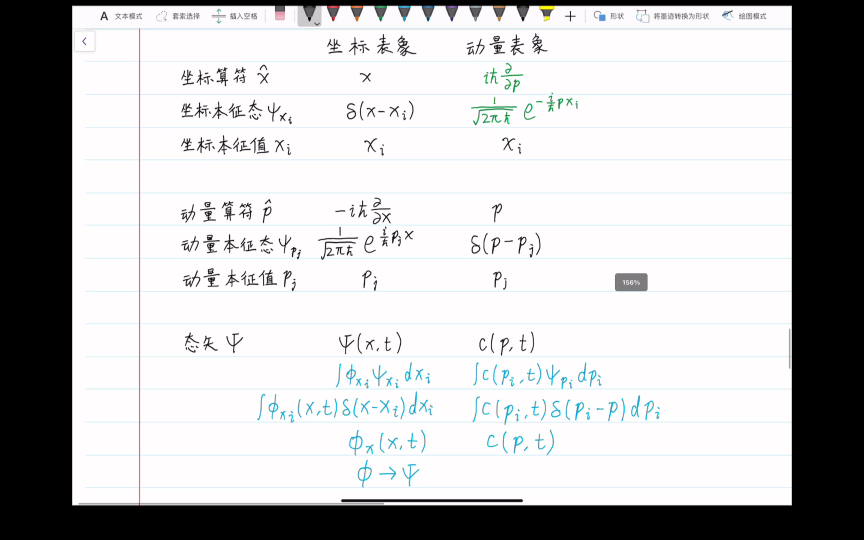 A 文本模式 套索选择 插入空格 形状 将墨迹转换为形状 绘图模式
坐标表象 动量表象
坐标算符 x̂ x iħ ∂/∂p
坐标本征态 ψ_{x_i} δ(x-x_i) 1/√(2πħ) e^{-i/ħ p x_i}
坐标本征值 x_i x_i x_i
动量算符 p̂ -iħ ∂/∂x p
动量本征态 ψ_{p_j} 1/√(2πħ) e^{i/ħ p_j x} δ(p-p_j)
动量本征值 p_j p_j p_j
156%
态矢 Ψ Ψ(x,t) c(p,t)
∫ϕ_{x_i} ψ_{x_i} dx_i ∫c(p_i,t) ψ_{p_i} dp_i
∫ϕ_{x_i}(x,t) δ(x-x_i) dx_i ∫c(p_i,t) δ(p_i-p) dp_i
ϕ_x(x,t) c(p,t)
ϕ → Ψ